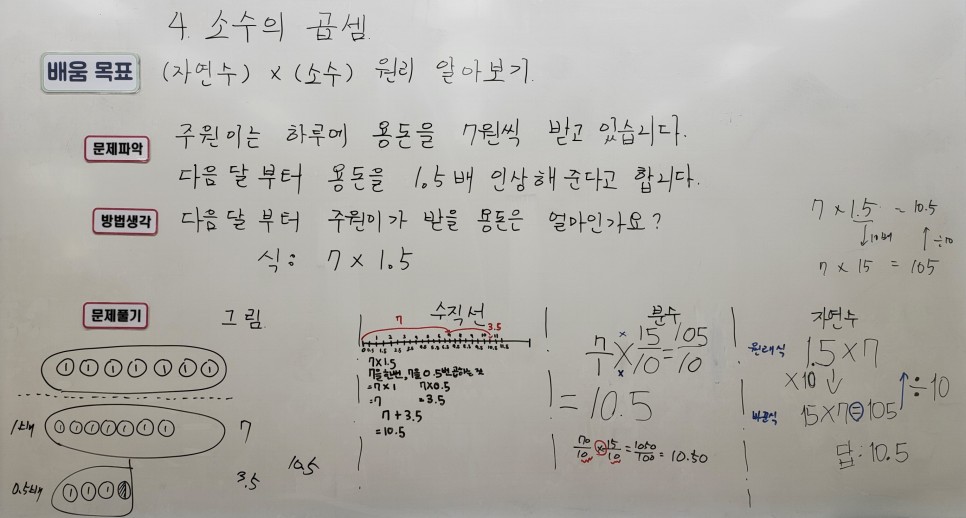 4. 소수의 곱셈.
배움 목표 (자연수) × (소수) 원리 알아보기.
문제파악 주원이는 하루에 용돈을 7원씩 받고 있습니다.
다음 달부터 용돈을 1.5배 인상해 준다고 합니다.
방법생각 다음달 부터 주원이가 받을 용돈은 얼마인가요?
식: 7 × 1.5
7 × 1.5 = 10.5
↓10배 ↑÷10
7 × 15 = 105
문제풀기 그림.
1 1 1 1 1 1 1
1배 1 1 1 1 1 1 1 7
0.5배 1 1 1 3.5
10.5
수직선
7 3.5
7×1.5
7을 한번, 7을 0.5번 곱하는 것
=7×1 7×0.5
=7 =3.5
7+3.5
=10.5
분수
7/1 × 15/10 = 105/10
= 10.5
70/10 × 15/10 = 1050/100 = 10.50
자연수
원래식 1.5×7
×10 ↓ ↑ ÷10
바꾼식 15×7=105
답: 10.5